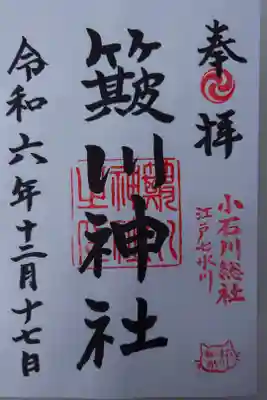 奉拝
小石川総社
江戸七氷川
簸川神社
令和六年十二月十七日